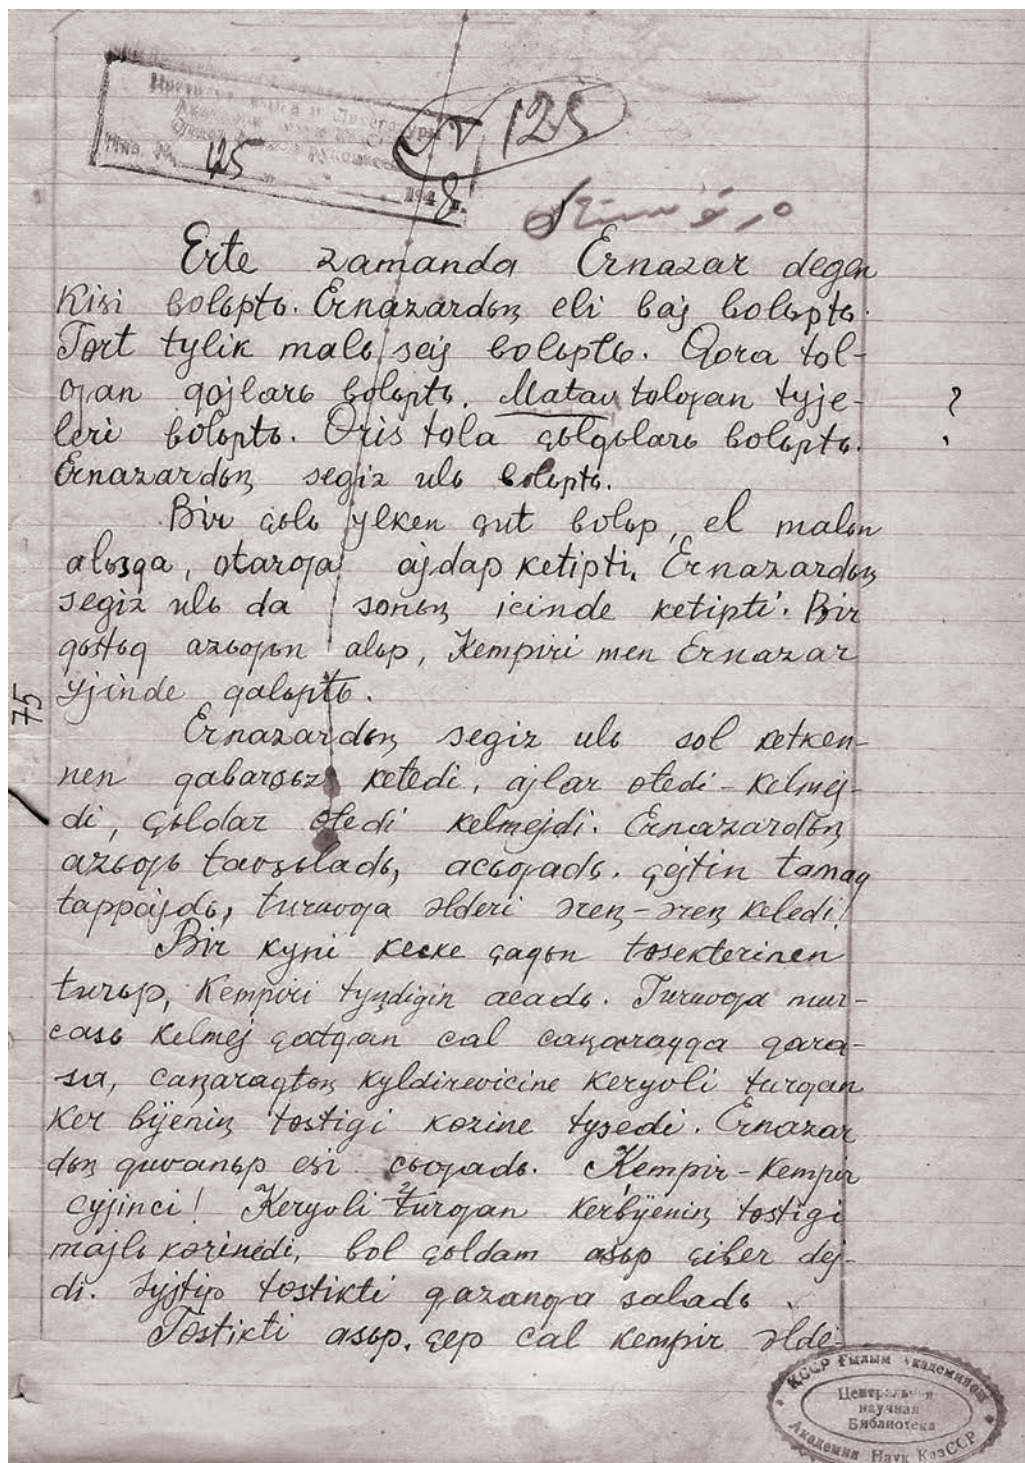 N 125
125
194 8 г.
Erte zamanda Ernazar degen
Kisi bolьptь. Ernazardьꞑ eli baj bolьptь.
Tɵrt tylik malь saj bolьptь. Qora tol-
ƣan qojlarь bolьptь. Matav tolƣan tyje-
leri bolьptь. Oris tola çьlqьlarь bolьptь.
?
Ernazardьꞑ segiz ulь bolьptь.
Bir çьlь ylken çut bolьp, el malьn
alьsqa, otarƣa ajdap ketipti. Ernazardьꞑ
segiz ulь da sonьꞑ icinde ketipti. Bir
qьstьq azьƣьn alьp, Kempiri men Ernazar
yjinde qalьptь.
75
Ernazardьꞑ segiz ulь sol ketken-
nen qabarsьz ketedi, ajlar ɵtedi - kelmej-
di, çьldar ɵtedi kelmejdi. Ernazardьꞑ
azьƣь tavsьladь, acьƣadь. çejtin tamaq
tappajdь, turuvƣa əlderi əreꞑ-əreꞑ keledi!
Bir kyni kecke çaqьn tɵsekterinen
turьp, Kempiri tyꞑdigin acadь. Turuvƣa mur-
casь kelmej çatqan cal caꞑaraqqa qara-
sa, caꞑaraqtьꞑ kyldirevicine keryvli turƣan
ker bijeniꞑ tɵstigi kɵzine tysedi. Ernazar
dьꞑ quvanьp esi cьƣadь. Kempir - Kempir
cyjinci! Keryvli turƣan kerbijeniꞑ tɵstigi
majlь kɵrinedi, bol çьldam asьp çiber dej-
di. Sɵjtip tɵstikti qazanƣa saladь.
Tɵstikti asьp, çep cal kempir əlde-
ҚССР Ғылым Академиясы
Центральная
научная
Библиотека
Академии Наук КазССР